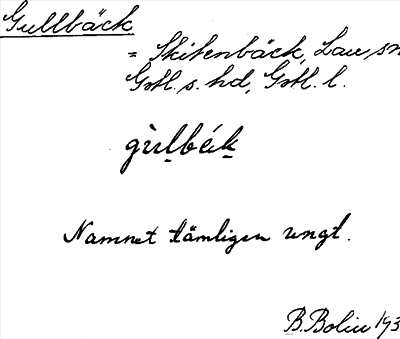 Gullbäck
= Skitenbäck, Lau sn
Gotl. s. hd, Gotl. l.
gùlbék
Namnet tämligen ungt.
B. Bolin 193